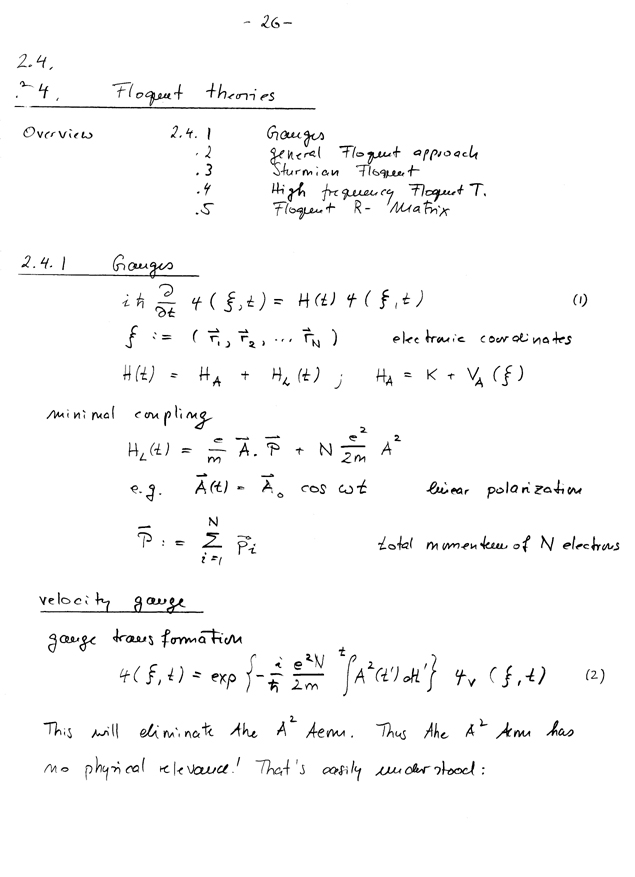 - 26 -
2.4.
.2 4. Floquet theories
Overview 2.4.1 Gauges
.2 general Floquet approach
.3 Sturmian Floquet
.4 High frequency Floquet T.
.5 Floquet R-Matrix
2.4.1 Gauges
iħ ∂/∂t ψ(ξ,t) = H(t) ψ(ξ,t) (1)
ξ := (r⃗₁, r⃗₂, ... r⃗_N) electronic coordinates
H(t) = H_A + H_L(t) ; H_A = K + V_A(ξ)
minimal coupling
H_L(t) = e/m A⃗. P⃗ + N e²/2m A²
e.g. A⃗(t) = A⃗₀ cos ωt linear polarization
P⃗ := Σ_{i=1}^{N} p⃗_i total momentum of N electrons
velocity gauge
gauge transformation
ψ(ξ,t) = exp {-i/ħ e²N/2m ∫^t A²(t')dt'} ψ_v (ξ,t) (2)
This will eliminate the A² term. Thus the A² term has
no physical relevance! That's easily understood: